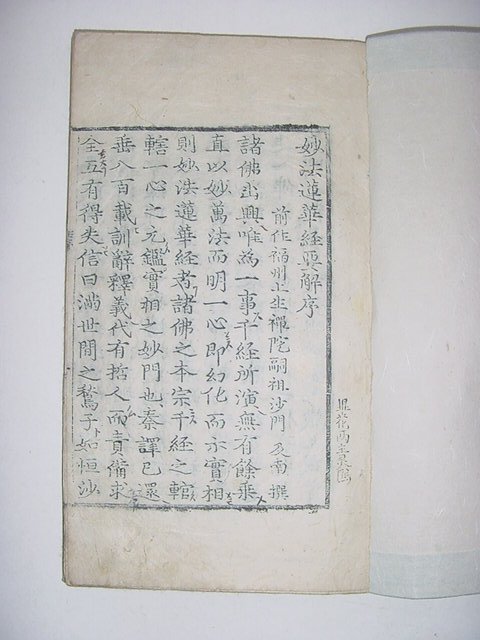 妙法蓮華經要解序
前住福州上生禪院嗣祖沙門 及南 撰
諸佛出興唯爲一事千経所演無有餘乗
直以妙萬法而明一心即幻化而示實相
則妙法蓮華経者諸佛之本宗千経之輨
轄一心之元鑑實相之妙門也秦譯已還
垂八百載訓辭釋義代有哲人而責備求
全互有得失信曰滿世間之鶖子如恒沙